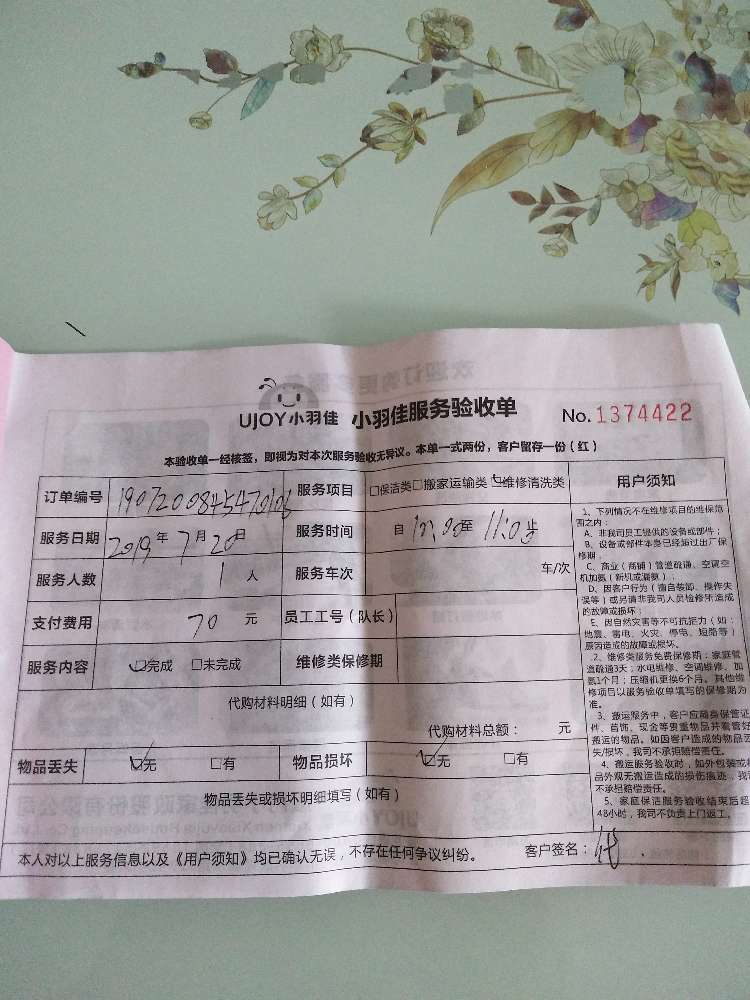 UJOY小羽佳 小羽佳服务验收单 No. 1374422
本验收单一经核签，即视为对本次服务验收无异议。本单一式两份，客户留存一份（红）
订单编号 服务项目 □保洁类□搬家运输类☑维修清洗类
服务日期 2019年7月20日 服务时间 自 至 11:0
服务人数 1人 服务车次 车/次
支付费用 70 元 员工工号（队长）
服务内容 ☑完成 □未完成 维修类保修期
代购材料明细（如有）
代购材料总额： 元
物品丢失 ☑无 □有 物品损坏 ☑无 □有
物品丢失或损坏明细填写（如有）
本人对以上服务信息以及《用户须知》均已确认无误，不存在任何争议纠纷。 客户签名：
用户须知
1、下列情况不在维修项目的维保范
围之内：
A、非我司员工提供的设备或部件；
B、设备或部件本身已经超过出厂保
修期，
C、商业（商铺）管道疏通、空调空
机加氨（新机或漏氨）
D、因客户行为（擅自装卸、操作失
误等）或另请非我司人员检修所造成
的故障或损坏；
E、因自然灾害等不可抗拒力（如：
地震、雷电、火灾、停电、短路等）
原因造成的故障或损坏。
2、维修类服务免费保修期：家庭管
道疏通3天；水电维修、空调维修、加
氨1个月；压缩机更换6个月。其他维
修项目以服务验收单填写的保修期为
准。
3、搬运服务中，客户应随身保管证
件、首饰、现金等贵重物品并看管好
搬运的物品。如因客户造成的物品丢
失/损坏，我司不承担赔偿责任。
4、搬运服务验收时，如外包装或
品外观无搬运造成的损伤痕迹，我司
不承担赔偿责任。
5、家庭保洁服务验收结束后超
48小时，我司不负责上门返工。